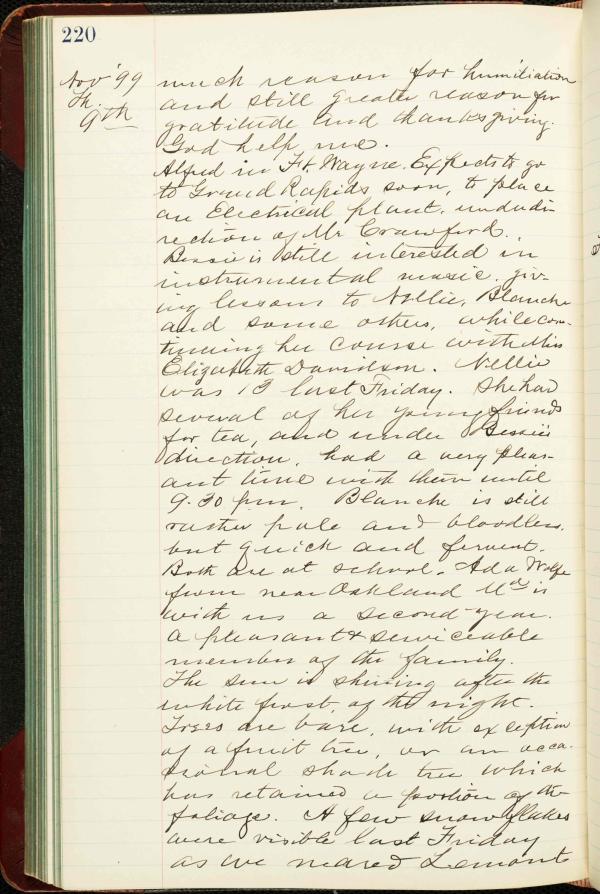 220
Nov '99
Th.
9th
much reason for humiliation
and still greater reason for
gratitude and thanksgiving.
God help me.
Alfred in Ft. Wayne. Expects to go
to Grand Rapids soon, to place
an Electrical plant, under di-
rection of Mr Crawford.
Bessie is still interested in
instrumental music, giv-
ing lessons to Nellie, Blanche
and some others, while con-
tinuing her course with Miss
Elizabeth Davidson. Nellie
was 13 last Friday. She had
several of her young friends
for tea, and under Bessie's
direction, had a very pleas-
ant time with them until
9.30 pm. Blanche is still
rather pale and bloodless,
but quick and fervent.
Both are at school. Ada Wolfe
from near Oakland Md is
with us a second year.
a pleasant & serviceable
member of the family.
The sun is shining after the
white frost, of the night.
Trees are bare, with exception
of a fruit tree, or an occa-
sional shade tree which
has retained a portion of the
foliage. A few snow flakes
were visible last Friday
as we neared Lemont